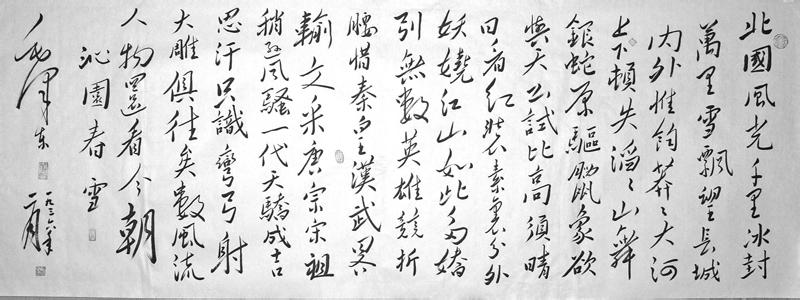 北國風光千里冰封
萬里雪飄望長城
内外惟餘莽〻大河
上下頓失滔〻山舞
銀蛇原驅臘象欲
與天公試比高須晴
日看紅裝素裹分外
妖嬈江山如此多嬌
引無數英雄競折
腰惜秦皇漢武畧
輸文采唐宗宋祖
稍遜風騷一代天驕成吉
思汗只識彎弓射
大雕俱往矣數風流
人物還看今朝
沁園春雪
毛澤东
一九三六年
二月